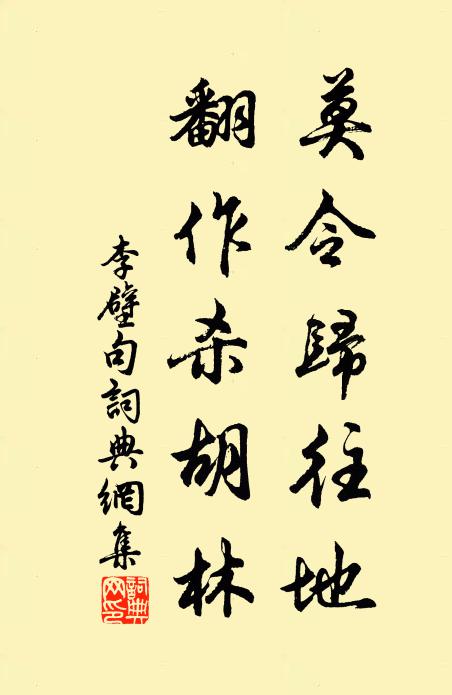 莫令歸往地
翻作杀胡林
李壁句詞典網集
詞典
网印